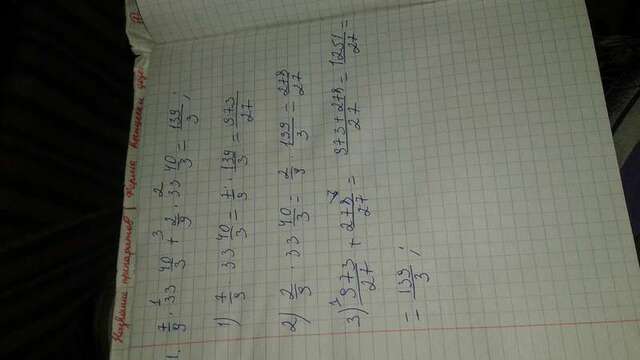 Название препаратов Форма выпуска
1. 7/9 · 33 40/3 + 2/9 · 33 40/3 = 139/3 ;
1) 7/9 · 33 40/3 = 7/9 · 139/3 = 973/27
2) 2/9 · 33 40/3 = 2/9 · 139/3 = 278/27
3) 973/27 + 278/27 = 973+278/27 = 1251/27 =
= 139/3 ;